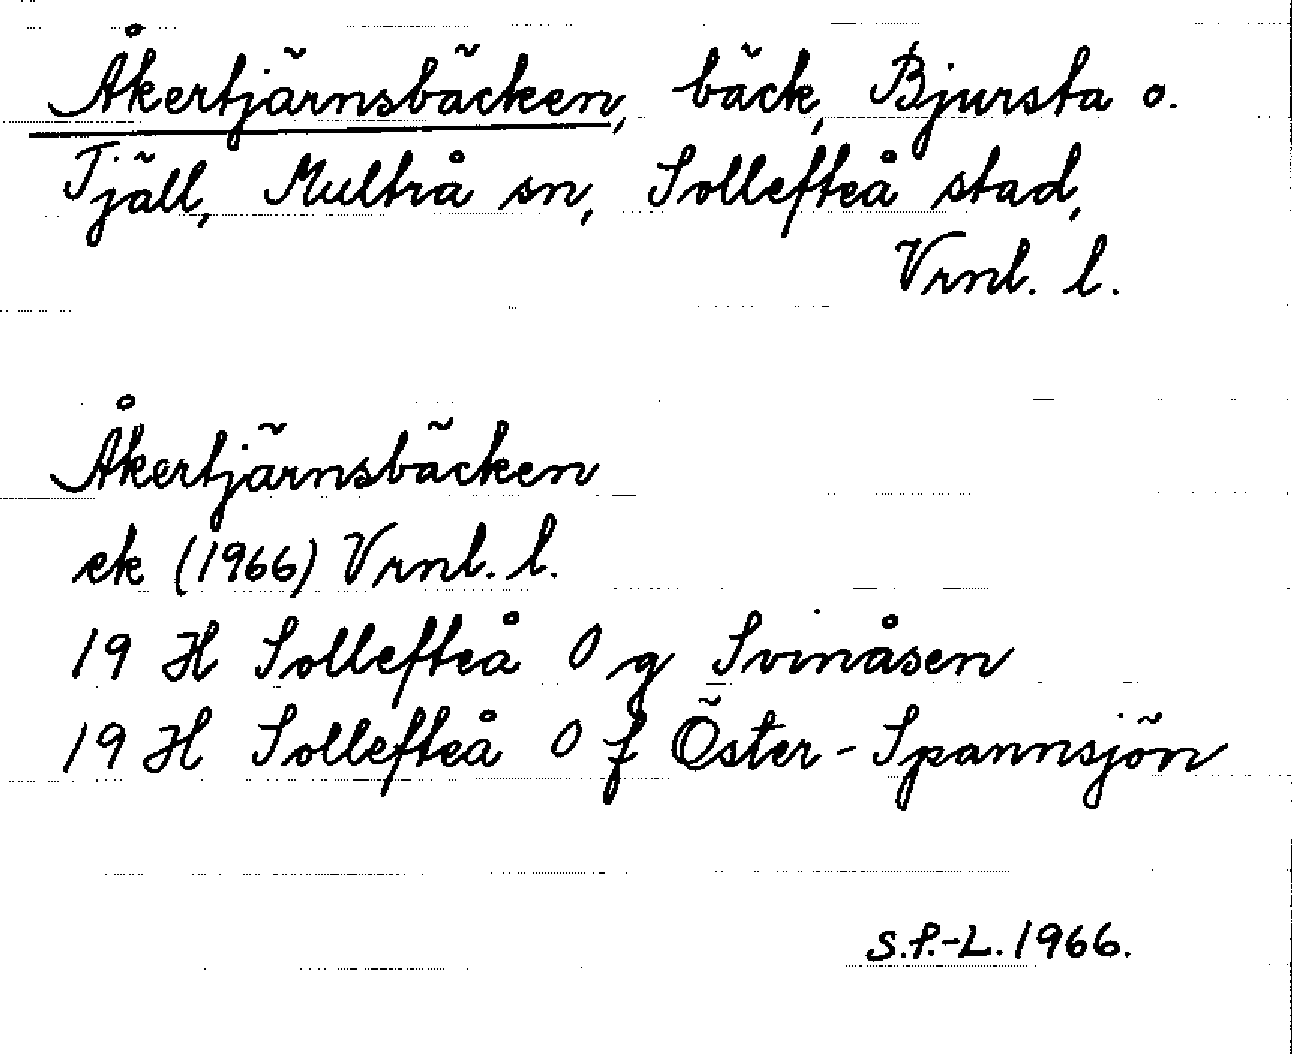 Åkertjärnsbäcken, bäck, Bjursta o.
Tjäll, Multrå sn, Sollefteå stad,
Vrnl. l.
Åkertjärnsbäcken
ek (1966) Vrnl. l.
19 H Sollefteå O g Svinåsen
19 H Sollefteå O f Öster-Spannsjön
S.P.-L. 1966.